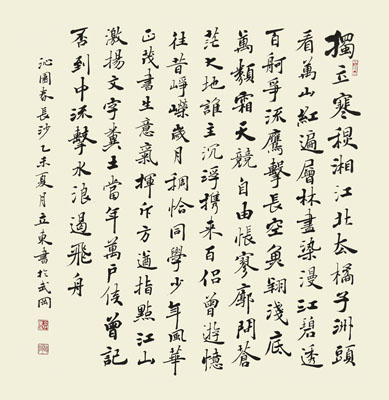 獨立寒秋湘江北去橘子洲頭
看萬山紅遍層林盡染漫江碧透
百舸爭流鷹擊長空魚翔淺底
萬類霜天競自由悵寥廓問蒼
茫大地誰主沉浮携來百侶曾遊憶
往昔崢嶸歲月稠恰同學少年風華
正茂書生意氣揮斥方遒指點江山
激揚文字糞土當年萬戶侯曾記
否到中流擊水浪遏飛舟
沁園春長沙乙未夏月立東書於武岡